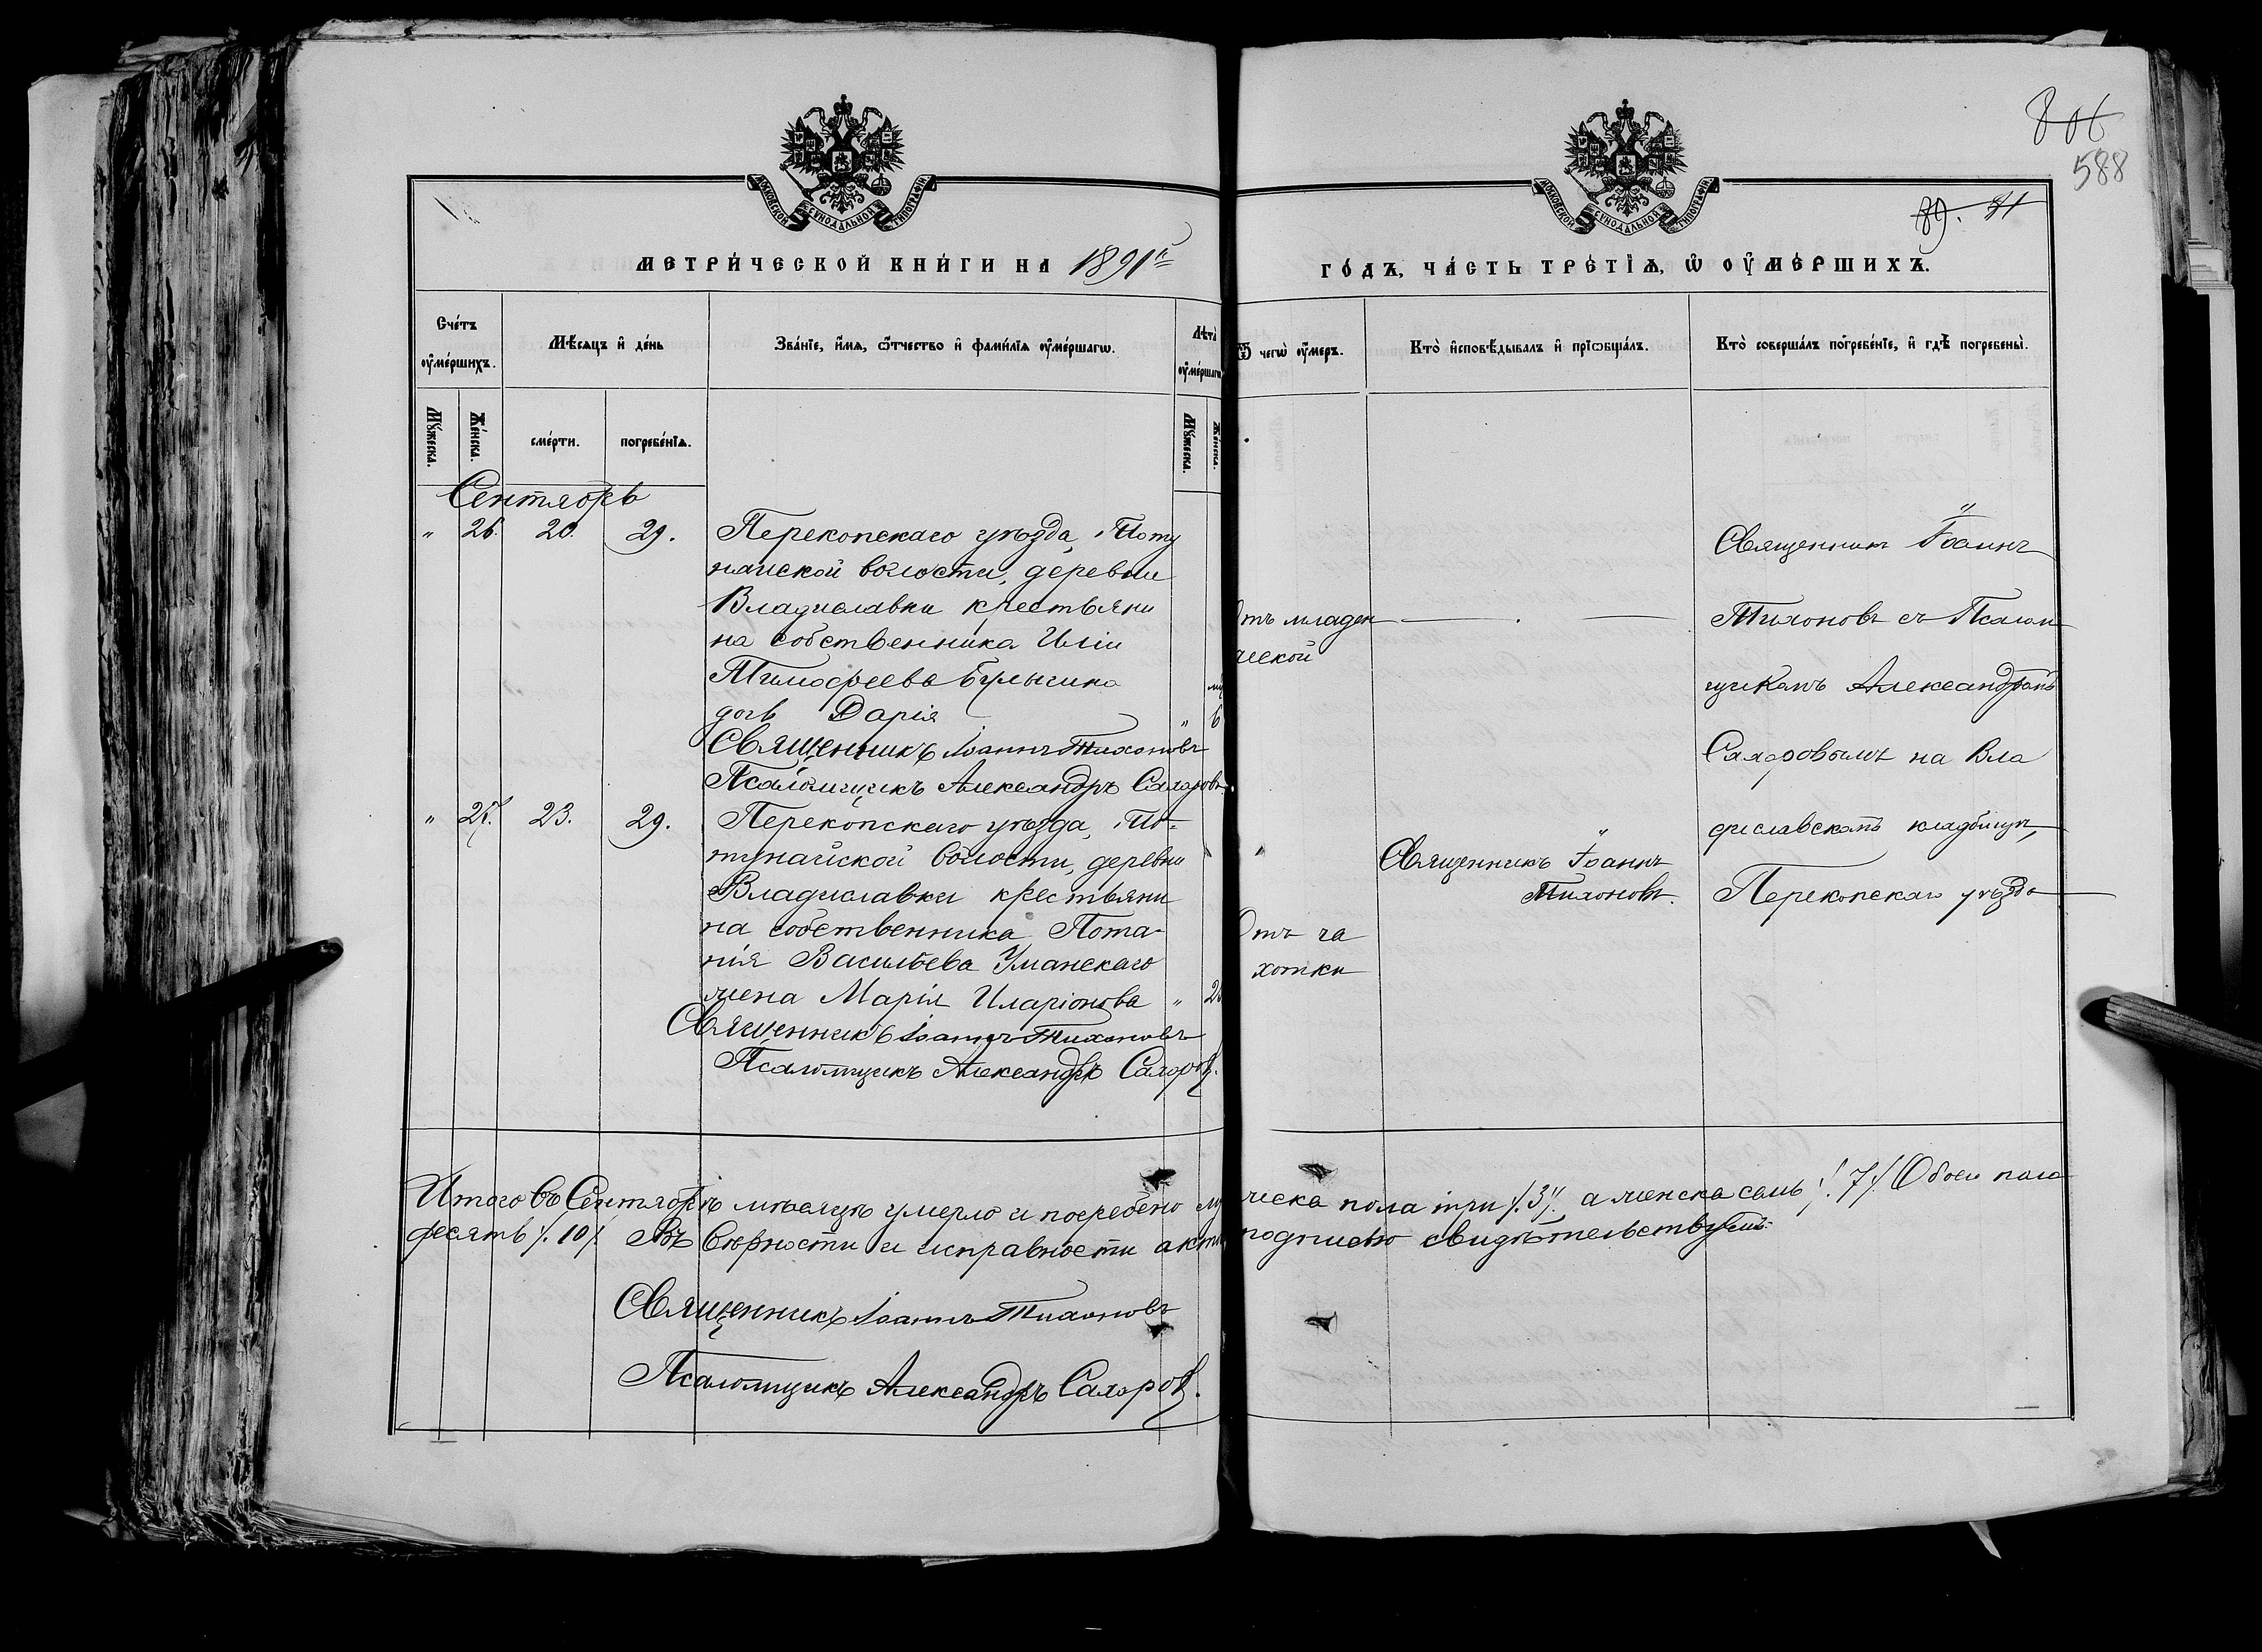 806
588
89. 81
МОСКОВСКОЙ СУНОДАЛЬНОЙ ТИПОГРАФІИ.
МОСКОВСКОЙ СУНОДАЛЬНОЙ ТИПОГРАФІИ.
МЕТРИ́ЧЕСКОЙ КНИ́ГИ НА 1891й
ГО́ДЪ, ЧА́СТЬ ТРЕ́ТІѦ, Ѡ҆ ОУ҆МЕ́РШИХЪ.
Сче́тъ оу҆ме́ршихъ.
Мѣ́сяцъ и҆ де́нь
Зва́нїе, и҆́мѧ, ѻ҆́тчество и҆ фами́лїѧ оу҆ме́ршагѡ.
Лѣ́та оу҆ме́ршагѡ
Ѿ чегѡ̀ оу҆́меръ.
Кто̀ и҆сповѣ́дывалъ и҆ прїѡбща́лъ.
Кто̀ соверша́лъ погребе́нїе, и҆ гдѣ̀ погребены̀.
Мꙋ́жеска.
Же́нска.
сме́рти.
погребе́нїѧ.
Мꙋ́жеска.
Же́нска.
Сентябрь
" 26. 20. 29.
Перекопскаго уѣзда, Тоту
найской волости, деревни
Владиславки крестьяни
на собственника Иліи
Тимофеева Булыгина
дочь Дарія " 6
Священникъ Іоаннъ Тихоновъ
Псаломщикъ Александръ Сахаровъ.
Отъ младен
ческой
Священникъ Іоаннъ
Тихоновъ съ Псалом
щикомъ Александромъ
Сахаровымъ на Вла
диславскомъ кладбищѣ,
Перекопскаго уѣзда
" 27. 23. 29.
Перекопскаго уѣзда, То-
тунайской волости, деревни
Владиславки крестьяни
на собственника Пота-
пія Васильева Уманскаго
жена Марія Иларіонова "
Священникъ Іоаннъ Тихоновъ
Псаломщикъ Александръ Сахаровъ.
Отъ ча
хотки
Священникъ Іоаннъ
Тихоновъ.
Итого въ Сентябрѣ мѣсяцѣ умерло и погребено му жеска пола три /.3/., а женска семь /.7/. Обоего пола
десять /.10/. Въ вѣрности и исправности акта подписью свидѣтельствуемъ:
Священникъ Іоаннъ Тихоновъ
Псаломщикъ Александръ Сахаровъ.